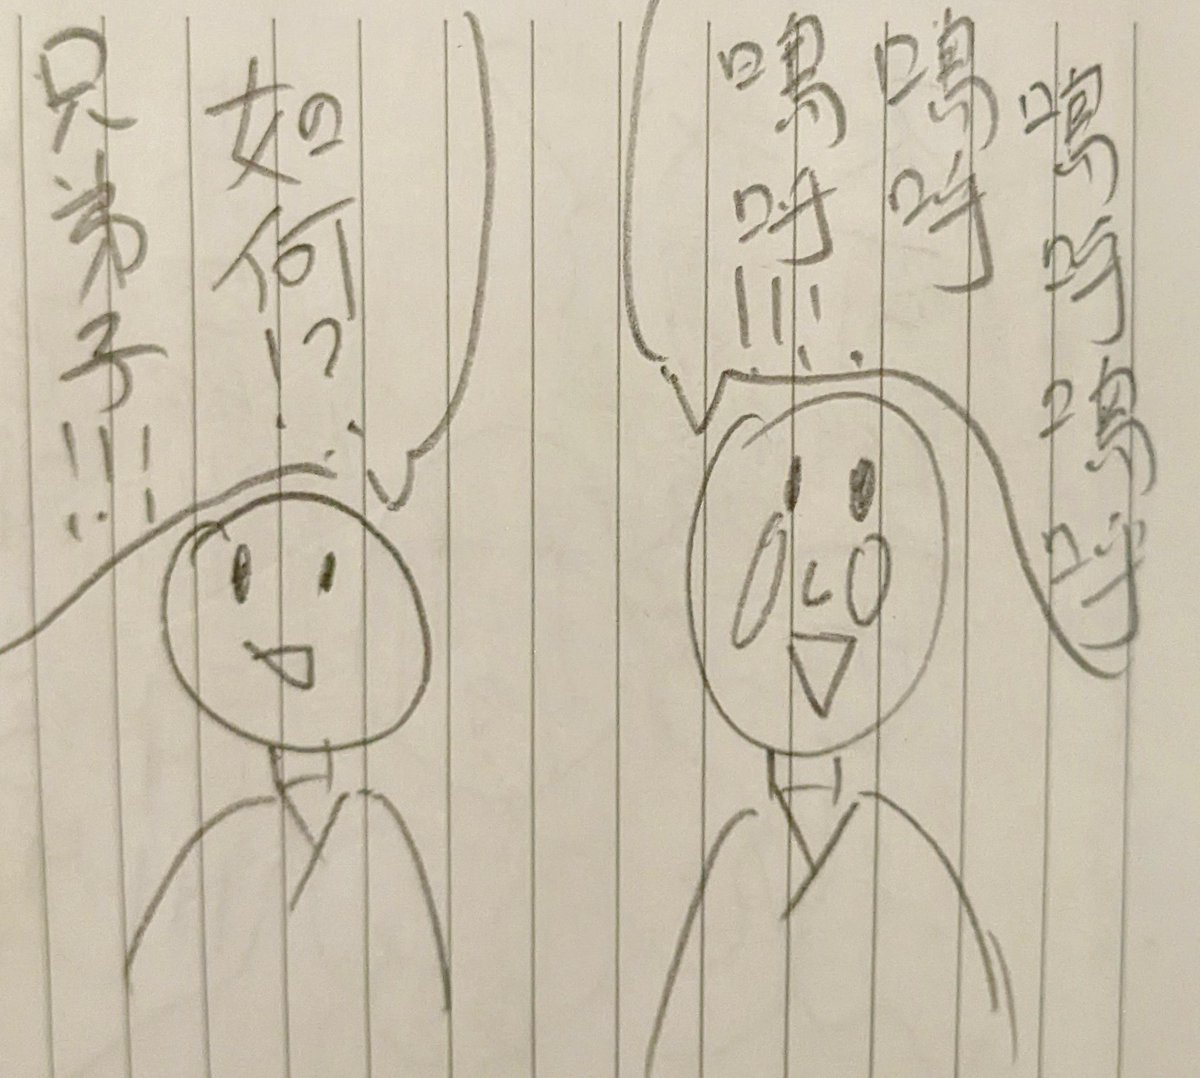 嗚呼嗚呼
嗚呼
嗚呼!!!
如何!?
兄弟子!!!